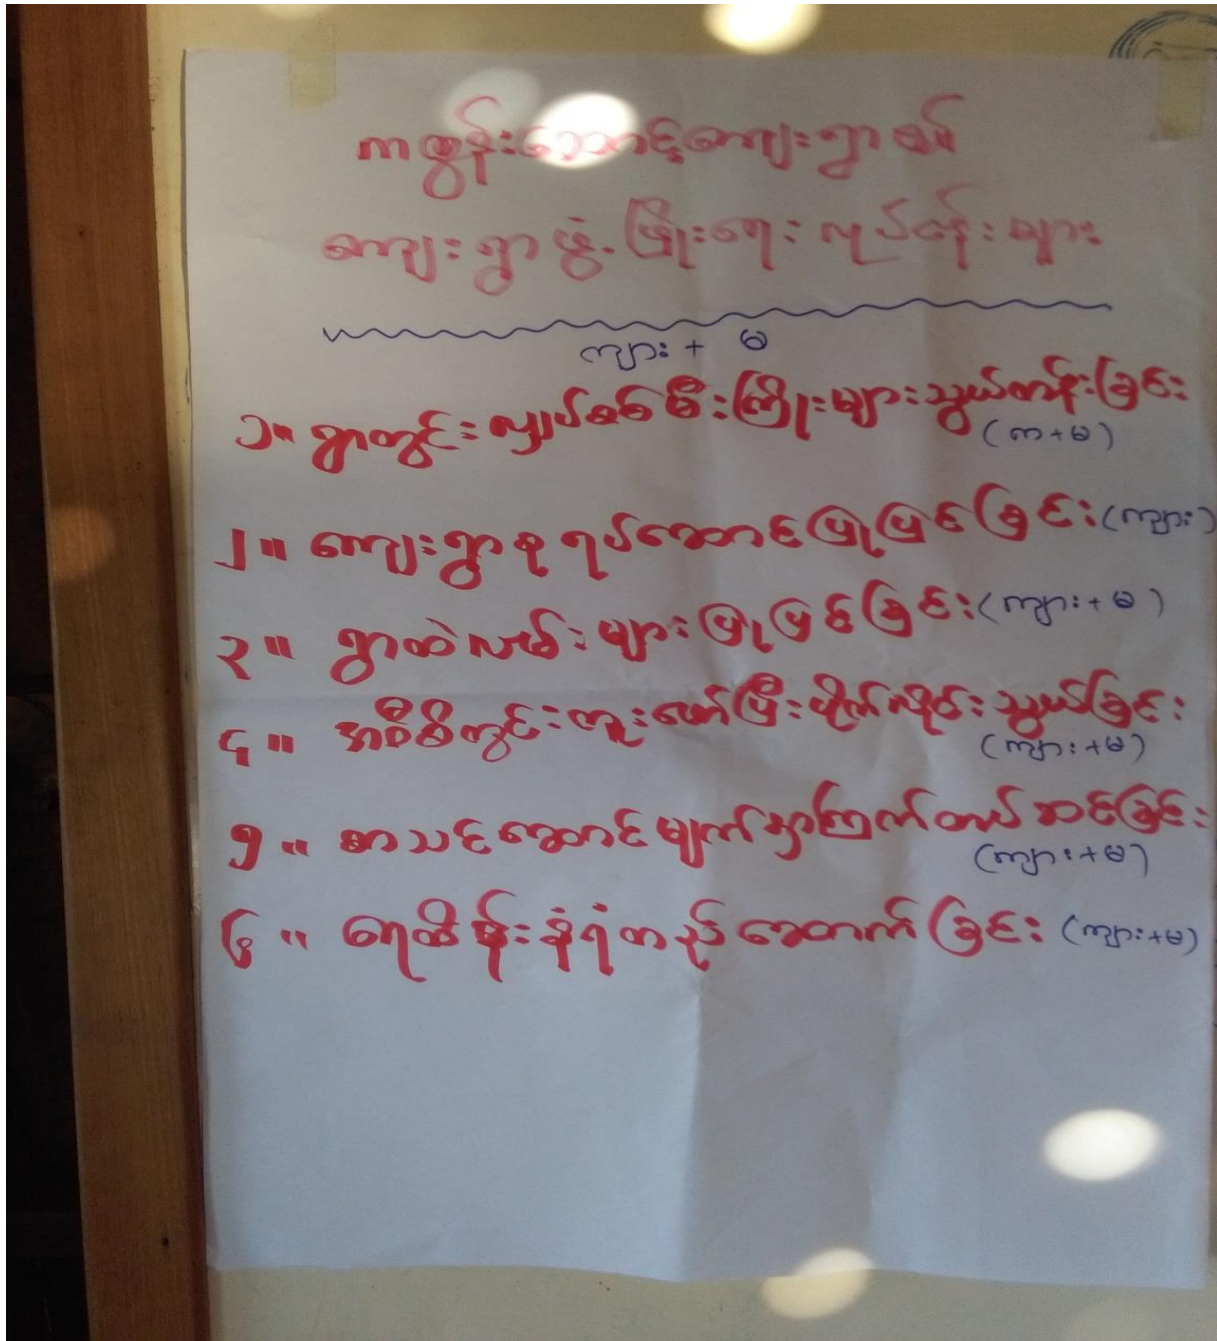 ကျေးရွာစု
ကျေးရွာဖွံ့ဖြိုးရေးလုပ်ငန်းများ
ကျား + မ
၁။ ရွာတွင်းလျှပ်စစ်မီးကြိုးများသွယ်တန်းခြင်း
(ကျား+မ)
၂။ ကျေးရွာစုရပ်ဆောင်ပြုပြင်ခြင်း (ကျား)
၃။ ရွာထဲလမ်းများပြုပြင်ခြင်း (ကျား+မ)
၄။ အဝီစိတွင်းတူးဖော်ပြီးပိုက်လိုင်းသွယ်ခြင်း
(ကျား+မ)
၅။ စာသင်ဆောင်မျက်နှာကြက်တပ်ဆင်ခြင်း
(ကျား+မ)
၆။ ရေထိန်းနံရံတည်ဆောက်ခြင်း (ကျား+မ)